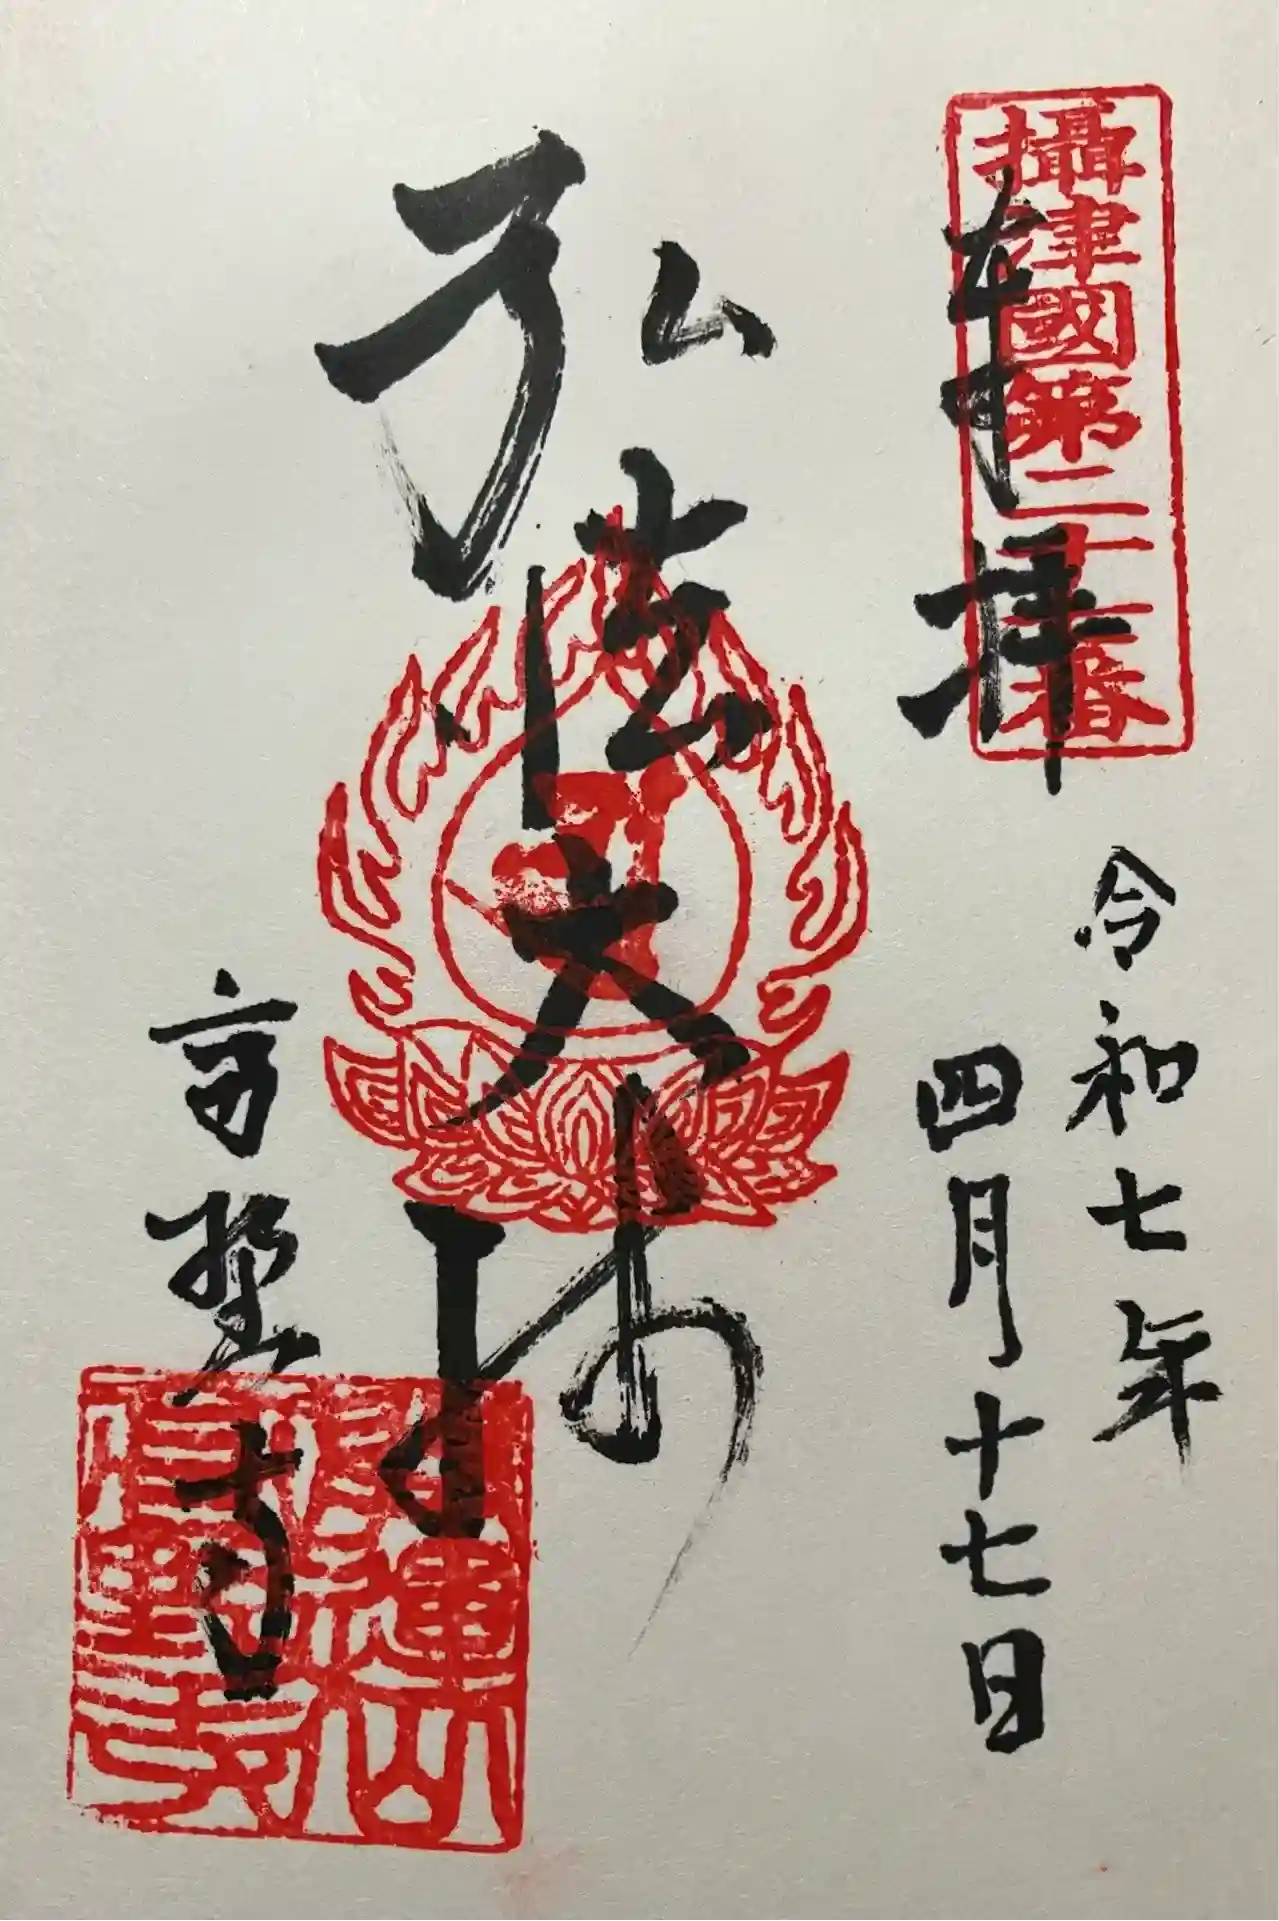 攝津國第二十二番
奉拝
令和七年
四月十七日
弘法大師
高野寺